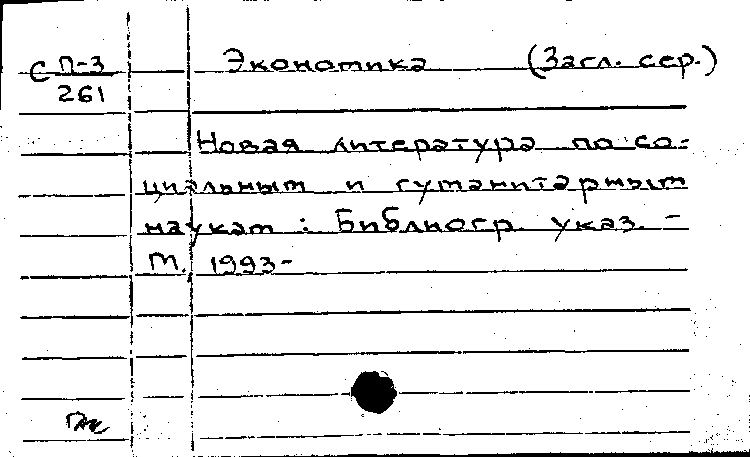 С П-3
261
Экономика (Загл. сер.)
Новая литература по со-
циальным и гуманитарным
наукам : Библиогр. указ. –
М., 1993-